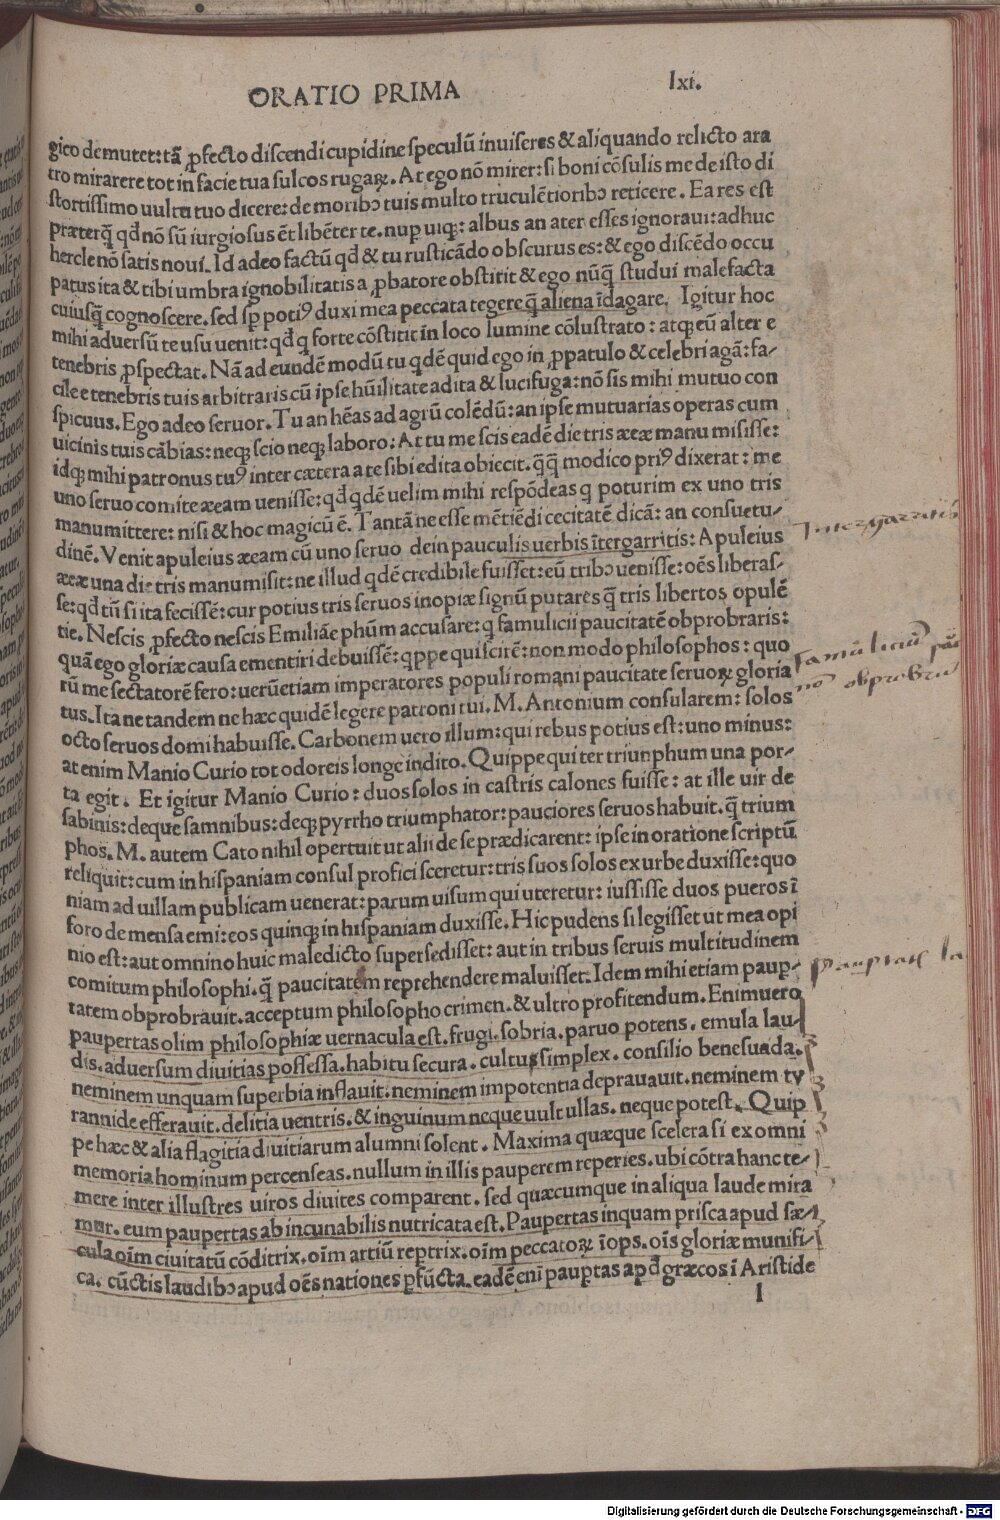 ORATIO PRIMA
lxi.
gico demutet: tā ꝓfecto discendi cupidine speculū inuiseres & aliquando relicto ara
tro mirarere tot in facie tua sulcos rugaꝝ. At ego nō mirer: si boni cōsulis me de isto di
stortissimo uultu tuo dicere: de moribꝰ tuis multo truculētioribꝰ reticere. Ea res est
præterq̄ qđ nō sū iurgiosus ēt libēter te. nuꝑ uiqꝫ: albus an ater esses ignoraui: adhuc
hercle nō satis noui. Id adeo factū qđ & tu rusticādo obscurus es: & ego discēdo occu
patus ita & tibi umbra ignobilitatis a ꝓbatore obstitit & ego nūq̄ studui malefacta
cuiusq̄ cognoscere. sed sꝑ potiꝰ duxi mea peccata tegere q̄ aliena īdagare. Igitur hoc
mihi aduersū te usu uenit: qđ q forte cōstitit in loco lumine cōlustrato: atqꝫ eū alter e
tenebris ꝓspectat. Nā ad eundē modū tu qdē quid ego in ꝓpatulo & celebri agā: fa-
cile e tenebris tuis arbitraris cū ipse hūilitate adita & lucifuga: nō sis mihi mutuo con
spicuus. Ego adeo seruor. Tu an hēas ad agrū colēdū: an ipse mutuarias operas cum
uicinis tuis cābias: neqꝫ scio neqꝫ laboro: At tu me scis eadē die tris æeæ manu misisse:
idqꝫ mihi patronus tuꝰ inter cætera a te sibi edita obiecit. q̄q̄ modico priꝰ dixerat: me
uno seruo comite æeam uenisse: qđ qdē uelim mihi respōdeas q poturim ex uno tris
manumittere: nisi & hoc magicū ē. Tantā ne esse mētiēdi cecitatē dicā: an consuetu-
dinē. Venit apuleius æeam cū uno seruo dein pauculis uerbis ītergarritis: Apuleius
æeæ una die tris manumisit: ne illud qdē credibile fuisset: eū tribꝰ uenisse: oēs liberas-
se: qđ tū si ita fecissē: cur potius tris seruos inopiæ signū putares q̄ tris libertos opulē
tie. Nescis ꝓfecto nescis Emiliāe phūm accusare: q famulicii paucitatē obprobraris:
quā ego gloriæ causa ementiri debuissē: qppe qui scirē: non modo philosophos: quo
rū me sectatorē fero: uerūetiam imperatores populi romani paucitate seruoꝝ gloria
tus. Ita ne tandem ne hæc quidē legere patroni tui. M. Antonium consularem: solos
octo seruos domi habuisse. Carbonem uero illum: qui rebus potius est: uno minus:
at enim Manio Curio tot odoreis longe indito. Quippe qui ter triunphum una por-
ta egit. Et igitur Manio Curio: duos solos in castris calones fuisse: at ille uir de
sabinis: deque samnibus: deqꝫ pyrrho triumphator: pauciores seruos habuit. q̄ trium
phos. M. autem Cato nihil opertuit ut alii de se prædicarent: ipse in oratione scriptū
reliquit: cum in hispaniam consul profici sceretur: tris suos solos ex urbe duxisse: quo
niam ad uillam publicam uenerat: parum uisum qui uteretur: iussisse duos pueros ī
foro de mensa emi: eos quinqꝫ in hispaniam duxisse. Hic pudens si legisset ut mea opi
nio est: aut omnino huic maledicto supersedisset: aut in tribus seruis multitudinem
comitum philosophi. q̄ paucitatem reprehendere maluisset. Idem mihi etiam pauꝑ-
tatem obprobrauit. acceptum philosopho crimen. & ultro profitendum. Enimuero
paupertas olim philosophiæ uernacula est. frugi. sobria. paruo potens. emula lau-
dis. aduersum diuitias possessa. habitu secura. cultu simplex. consilio benesuada.
neminem unquam superbia inflauit. neminem impotentia deprauauit. neminem ty
rannide efferauit. delitia uentris. & inguinum neque uult ullas. neque potest. Quip
pe hæc & alia flagitia diuitiarum alumni solent. Maxima quæque scelera si ex omni
memoria hominum percenseas. nullum in illis pauperem reperies. ubi cōtra hanc te-
mere inter illustres uiros diuites comparent. sed quæcumque in aliqua laude mira
mur. eum paupertas ab incunabilis nutricata est. Paupertas inquam prisca apud sæ-
cula oīm ciuitatū cōditrix. oīm artiū reꝑtrix. oīm peccatoꝝ īops. oīs gloriæ munifi-
ca. cūctis laudibꝰ apud oēs nationes ꝑfūcta. eadē enī pauꝑtas apđ græcos ī Aristide
l
Intergarritis
Famuliciū
obprobrari
Digitalisierung gefördert durch die Deutsche Forschungsgemeinschaft - DFG